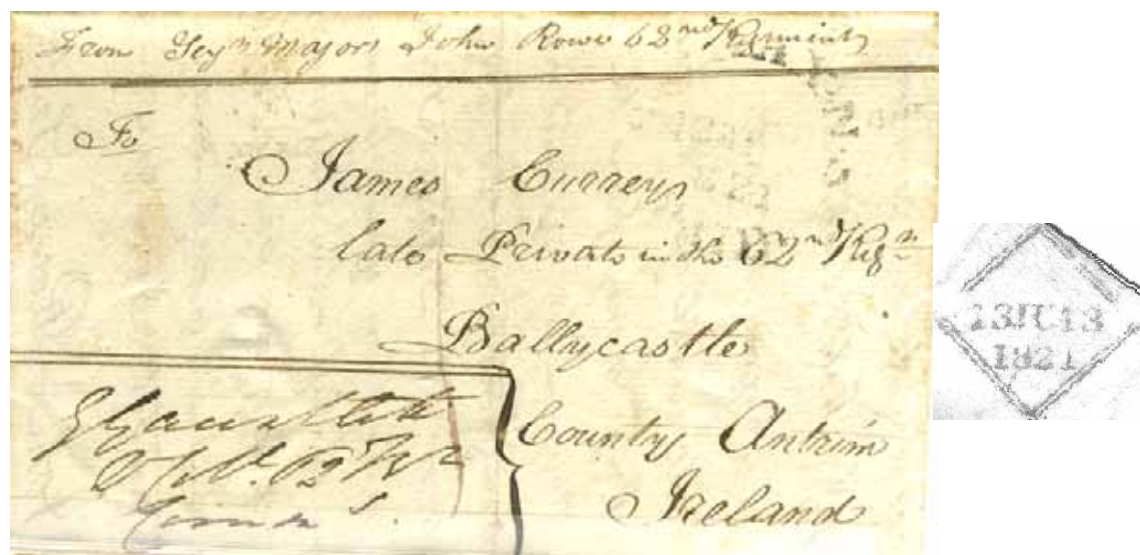 From Serjt Major John Rowe 62nd Regiment
To
James Currey
late Private in the 62nd Regt
Ballycastle
County Antrim
Ireland
62
13JU13
1821